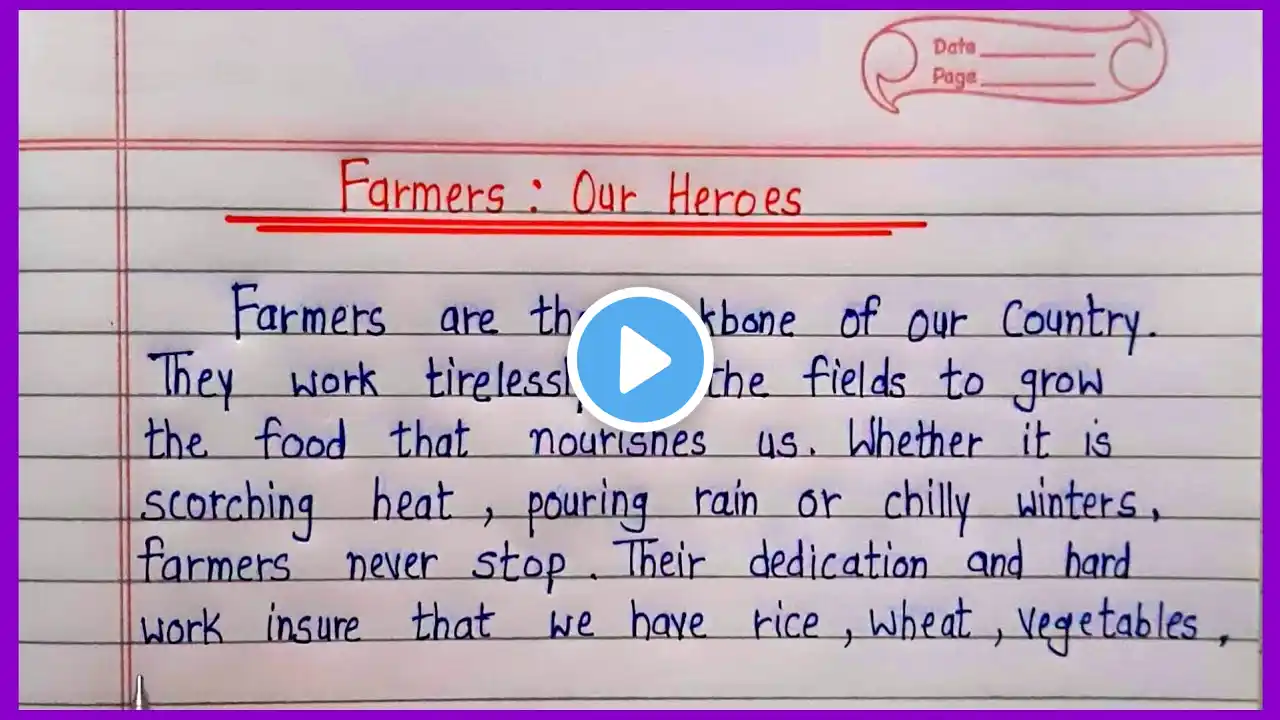 Date
Page
Farmers : Our Heroes
Farmers are the of our Country.
They work tirelessly the fields to grow
the food that nourishes us. Whether it is
scorching heat, pouring rain or chilly winters,
farmers never stop. Their dedication and hard
work insure that we have rice, wheat, vegetables,